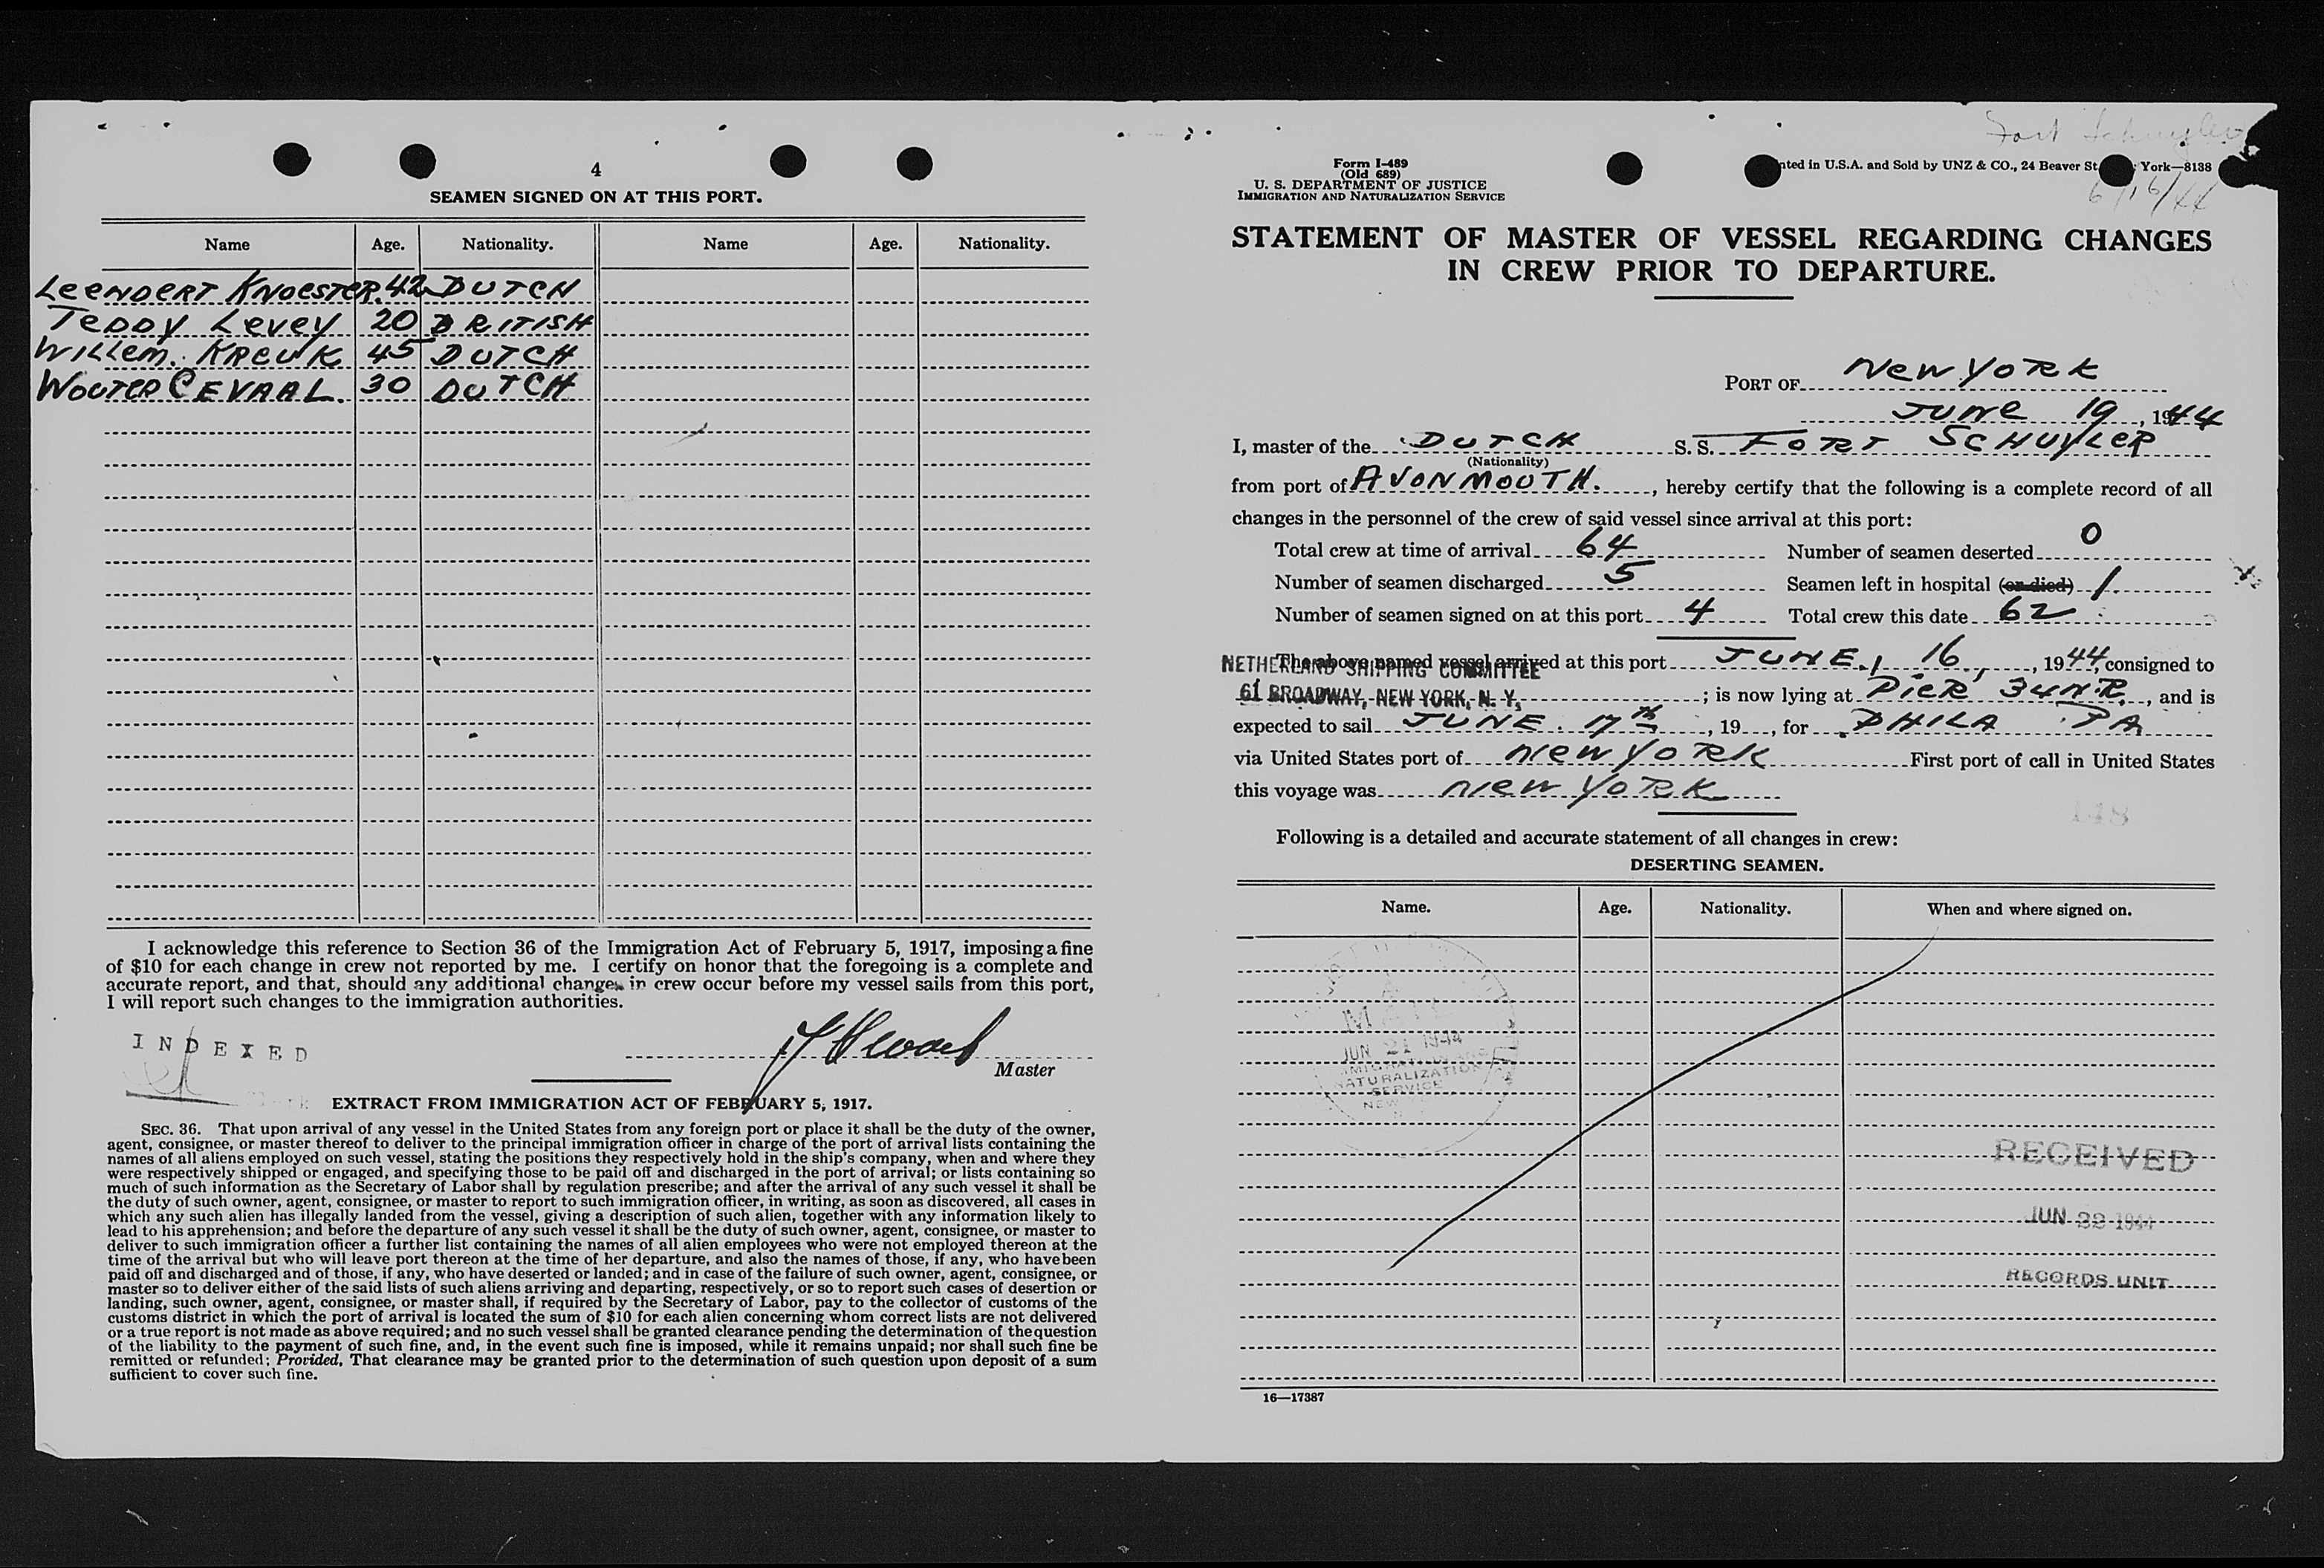 4
SEAMEN SIGNED ON AT THIS PORT.
Name Age. Nationality. Name Age. Nationality.
LEENDERT KNOESTER. 42 DUTCH
TEDDY LEVEY 20 BRITISH
WILLEM. KREUK 45 DUTCH
WOUTER CEVAAL. 30 DUTCH
I acknowledge this reference to Section 36 of the Immigration Act of February 5, 1917, imposing a fine
of $10 for each change in crew not reported by me. I certify on honor that the foregoing is a complete and
accurate report, and that, should any additional changes in crew occur before my vessel sails from this port,
I will report such changes to the immigration authorities.
INDEXED
Master
EXTRACT FROM IMMIGRATION ACT OF FEBRUARY 5, 1917.
SEC. 36. That upon arrival of any vessel in the United States from any foreign port or place it shall be the duty of the owner,
agent, consignee, or master thereof to deliver to the principal immigration officer in charge of the port of arrival lists containing the
names of all aliens employed on such vessel, stating the positions they respectively hold in the ship's company, when and where they
were respectively shipped or engaged, and specifying those to be paid off and discharged in the port of arrival; or lists containing so
much of such information as the Secretary of Labor shall by regulation prescribe; and after the arrival of any such vessel it shall be
the duty of such owner, agent, consignee, or master to report to such immigration officer, in writing, as soon as discovered, all cases in
which any such alien has illegally landed from the vessel, giving a description of such alien, together with any information likely to
lead to his apprehension; and before the departure of any such vessel it shall be the duty of such owner, agent, consignee, or master to
deliver to such immigration officer a further list containing the names of all alien employees who were not employed thereon at the
time of the arrival but who will leave port thereon at the time of her departure, and also the names of those, if any, who have been
paid off and discharged and of those, if any, who have deserted or landed; and in case of the failure of such owner, agent, consignee, or
master so to deliver either of the said lists of such aliens arriving and departing, respectively, or so to report such cases of desertion or
landing, such owner, agent, consignee, or master shall, if required by the Secretary of Labor, pay to the collector of customs of the
customs district in which the port of arrival is located the sum of $10 for each alien concerning whom correct lists are not delivered
or a true report is not made as above required; and no such vessel shall be granted clearance pending the determination of the question
of the liability to the payment of such fine, and, in the event such fine is imposed, while it remains unpaid; nor shall such fine be
remitted or refunded; Provided, That clearance may be granted prior to the determination of such question upon deposit of a sum
sufficient to cover such fine.
Fort Schuyler
Form I-489
(Old 689)
U. S. DEPARTMENT OF JUSTICE
IMMIGRATION AND NATURALIZATION SERVICE
nted in U.S.A. and Sold by UNZ & CO., 24 Beaver St. York—8138
6/16/44
STATEMENT OF MASTER OF VESSEL REGARDING CHANGES
IN CREW PRIOR TO DEPARTURE.
PORT OF NEW YORK
JUNE 19, 1944
I, master of the DUTCH S. S. FORT SCHUYLER
(Nationality)
from port of AVONMOUTH. , hereby certify that the following is a complete record of all
changes in the personnel of the crew of said vessel since arrival at this port:
Total crew at time of arrival 64 Number of seamen deserted 0
Number of seamen discharged 5 Seamen left in hospital (or died) 1.
Number of seamen signed on at this port 4 Total crew this date 62
The above named vessel arrived at this port JUNE, 16, 1944, consigned to
NETHERLAND SHIPPING COMMITTEE
61 BROADWAY, NEW YORK, N. Y. ; is now lying at PIER 34 N.R. , and is
expected to sail JUNE. 17th , 19 , for PHILA PA
via United States port of NEW YORK First port of call in United States
this voyage was NEW YORK
148
Following is a detailed and accurate statement of all changes in crew:
DESERTING SEAMEN.
Name. Age. Nationality. When and where signed on.
MAIL
JUN 21 1944
IMMIGRATION AND
NATURALIZATION
SERVICE
NEW
RECEIVED
JUN 22 1944
RECORDS UNIT
16—17387